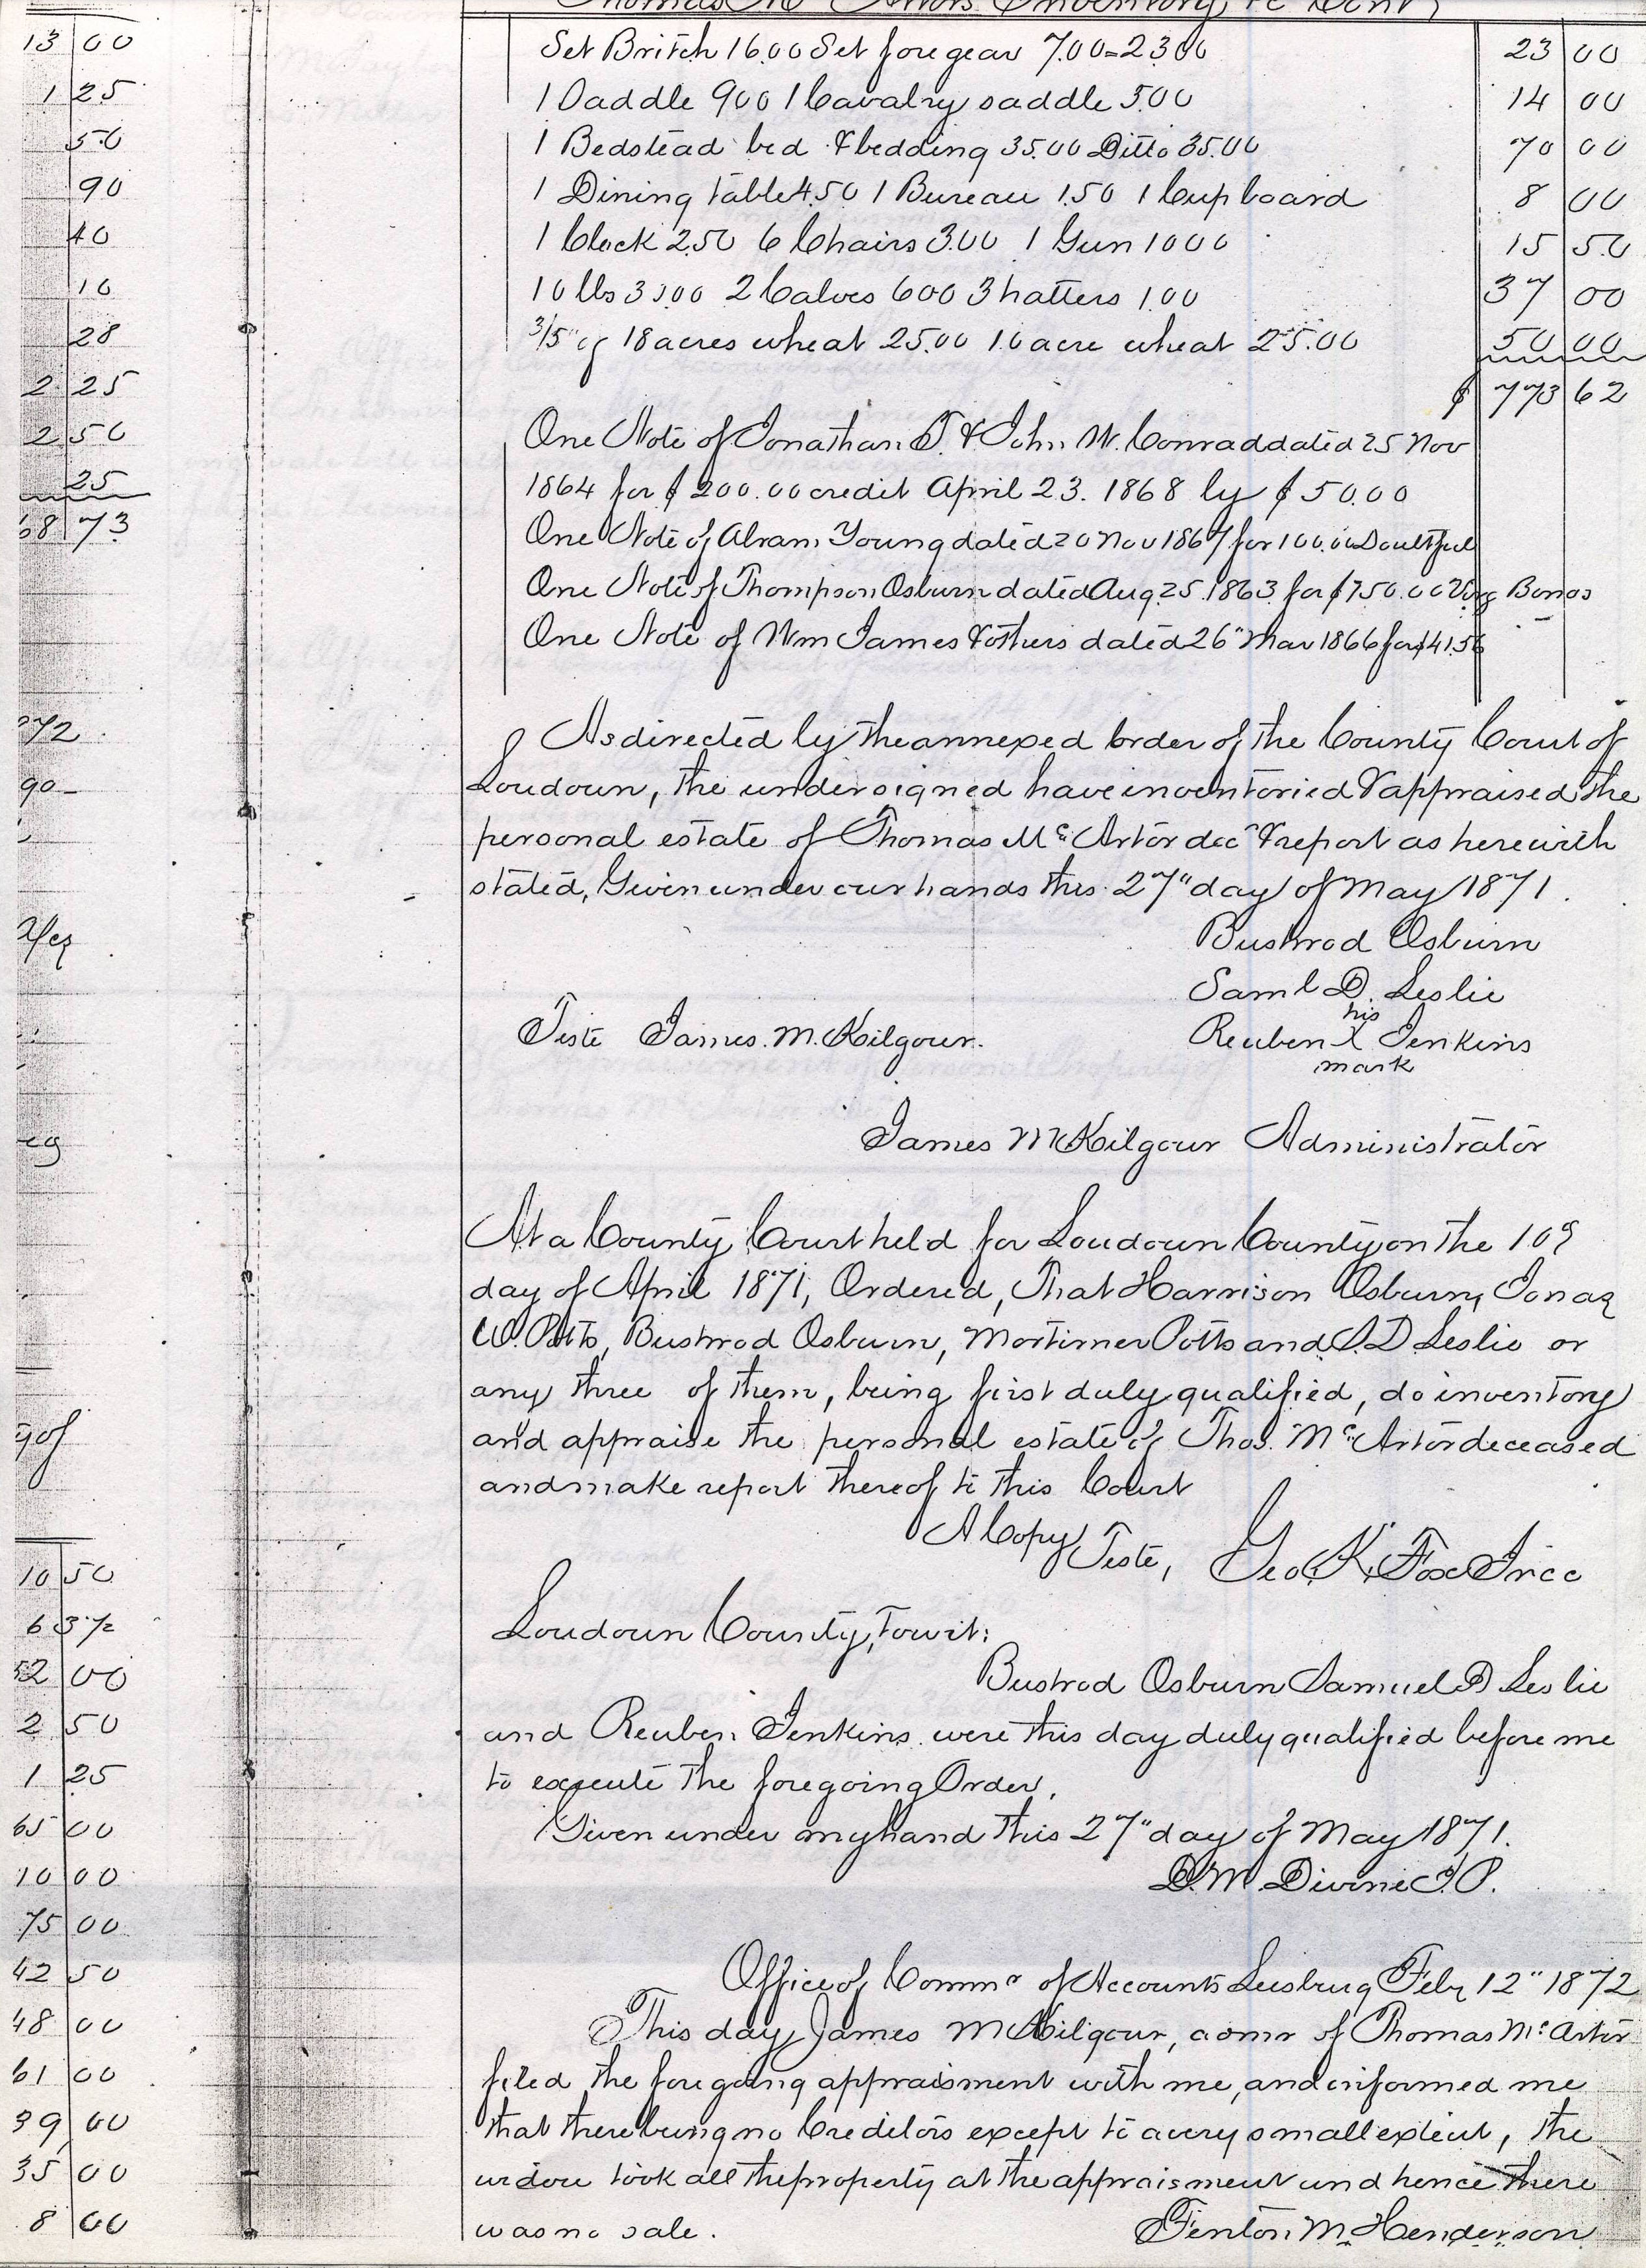 Thomas Mc Artors Inventory, &c Cont,
Set Britch 16.00 Set fore gear 7.00=23.00 23 00
1 Saddle 9.00 1 Cavalry saddle 5.00 14 00
1 Bedstead bed & bedding 35.00 Ditto 35.00 70 00
1 Dining table 4.50 1 Bureau 1.50 1 Cupboard 8 00
1 Clock 2.50 6 Chairs 3.00 1 Gun 10.00 15 50
2 Calves 6.00 3 1.00 37 00
3/5" of 18 acres wheat 25.00 10 acre wheat 25.00 50 00
$ 773 62
One Note of Jonathan T. & John W. Conrad dated 25 Nov
1864 for $ 200.00 credit April 23. 1868 by $ 50.00
One Note of Abram Young dated 20 Nov 1867 for 100.00 Doubtful
One Note of Thompson Osburn dated Aug. 25. 1863 for $750.00 Virg Bonds
One Note of Wm James & others dated 26" Mar 1866 for $41.56
As directed by the annexed order of the County Court of
Loudoun, the undersigned have inventoried & appraised the
personal estate of Thomas Mc Artor decd & report as herewith
stated, Given under our hands this 27" day of May 1871.
Bushrod Osburn
Saml D. Leslie
his
Teste James. M. Kilgour. Reuben X Jenkins
mark
James M Kilgour Administrator
At a County Court held for Loudoun County on the 10th
day of April 1871, Ordered, That Harrison Osburn, Jonas
W. Potts, Bushrod Osburn, Mortimer Potts and S. D. Leslie or
any three of them, being first duly qualified, do inventory
and appraise the personal estate of Thos. Mc Artor deceased
and make report thereof to this Court
A Copy Teste, Geo. K. Fox
Loudoun County, Towit:
Bushrod Osburn Samuel D Leslie
and Reuben Jenkins were this day duly qualified before me
to execute the foregoing Order.
Given under my hand this 27" day of May 1871.
D. M. Divine J. P.
Office of Commr of Accounts Leesburg Feby 12" 1872
This day James M Kilgour, admr of Thomas Mc Artor
filed the foregoing appraisment with me, and informed me
that there being no Creditors except to a very small extent, the
widow took all the property at the appraisment and hence there
was no sale. Fenton M. Henderson
13 00
1 25
50
90
40
10
28
2 25
2 50
25
68 73
72
90
10 50
6 37½
52 00
2 50
1 25
65 00
10 00
75 00
42 50
48 00
61 00
39 00
35 00
8 00